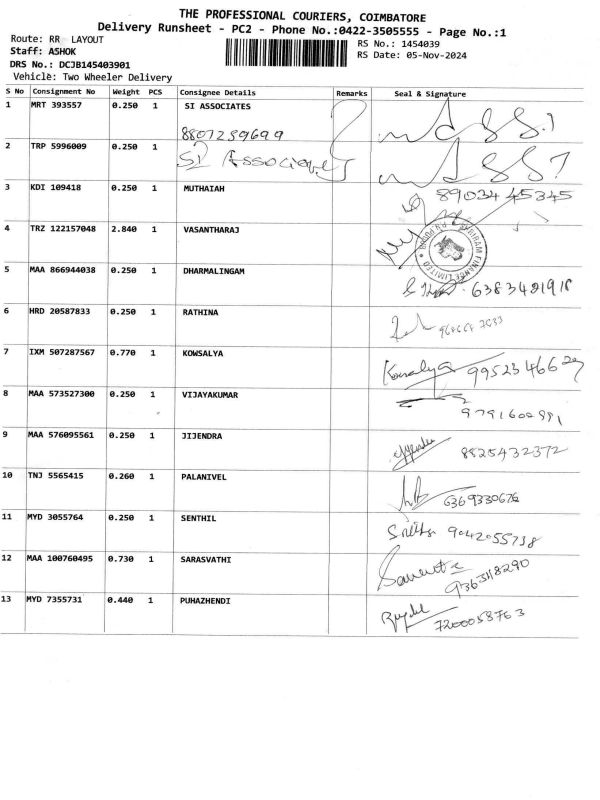 THE PROFESSIONAL COURIERS, COIMBATORE
Delivery Runsheet - PC2 - Phone No.:0422-3505555 - Page No.:1
Route: RR LAYOUT
Staff: ASHOK
DRS No.: DCJB145403901
Vehicle: Two Wheeler Delivery
RS No.: 1454039
RS Date: 05-Nov-2024
S No Consignment No Weight PCS Consignee Details Remarks Seal & Signature
1 MRT 393557 0.250 1 SI ASSOCIATES
8807239699
2 TRP 5996009 0.250 1 SI Associates
3 KDI 109418 0.250 1 MUTHAIAH 89034 45345
4 TRZ 122157048 2.840 1 VASANTHARAJ
SHRIRAM FINANCE LIMITED
5 MAA 866944038 0.250 1 DHARMALINGAM
6 HRD 20587833 0.250 1 RATHINA
7 IXM 507287567 0.770 1 KOWSALYA Kowsalya
8 MAA 573527300 0.250 1 VIJAYAKUMAR
9 MAA 576095561 0.250 1 JIJENDRA 8825432372
10 TNJ 5565415 0.260 1 PALANIVEL 6369330676
11 MYD 3055764 0.250 1 SENTHIL 9042055738
12 MAA 100760495 0.730 1 SARASVATHI
13 MYD 7355731 0.440 1 PUHAZHENDI 7200058763